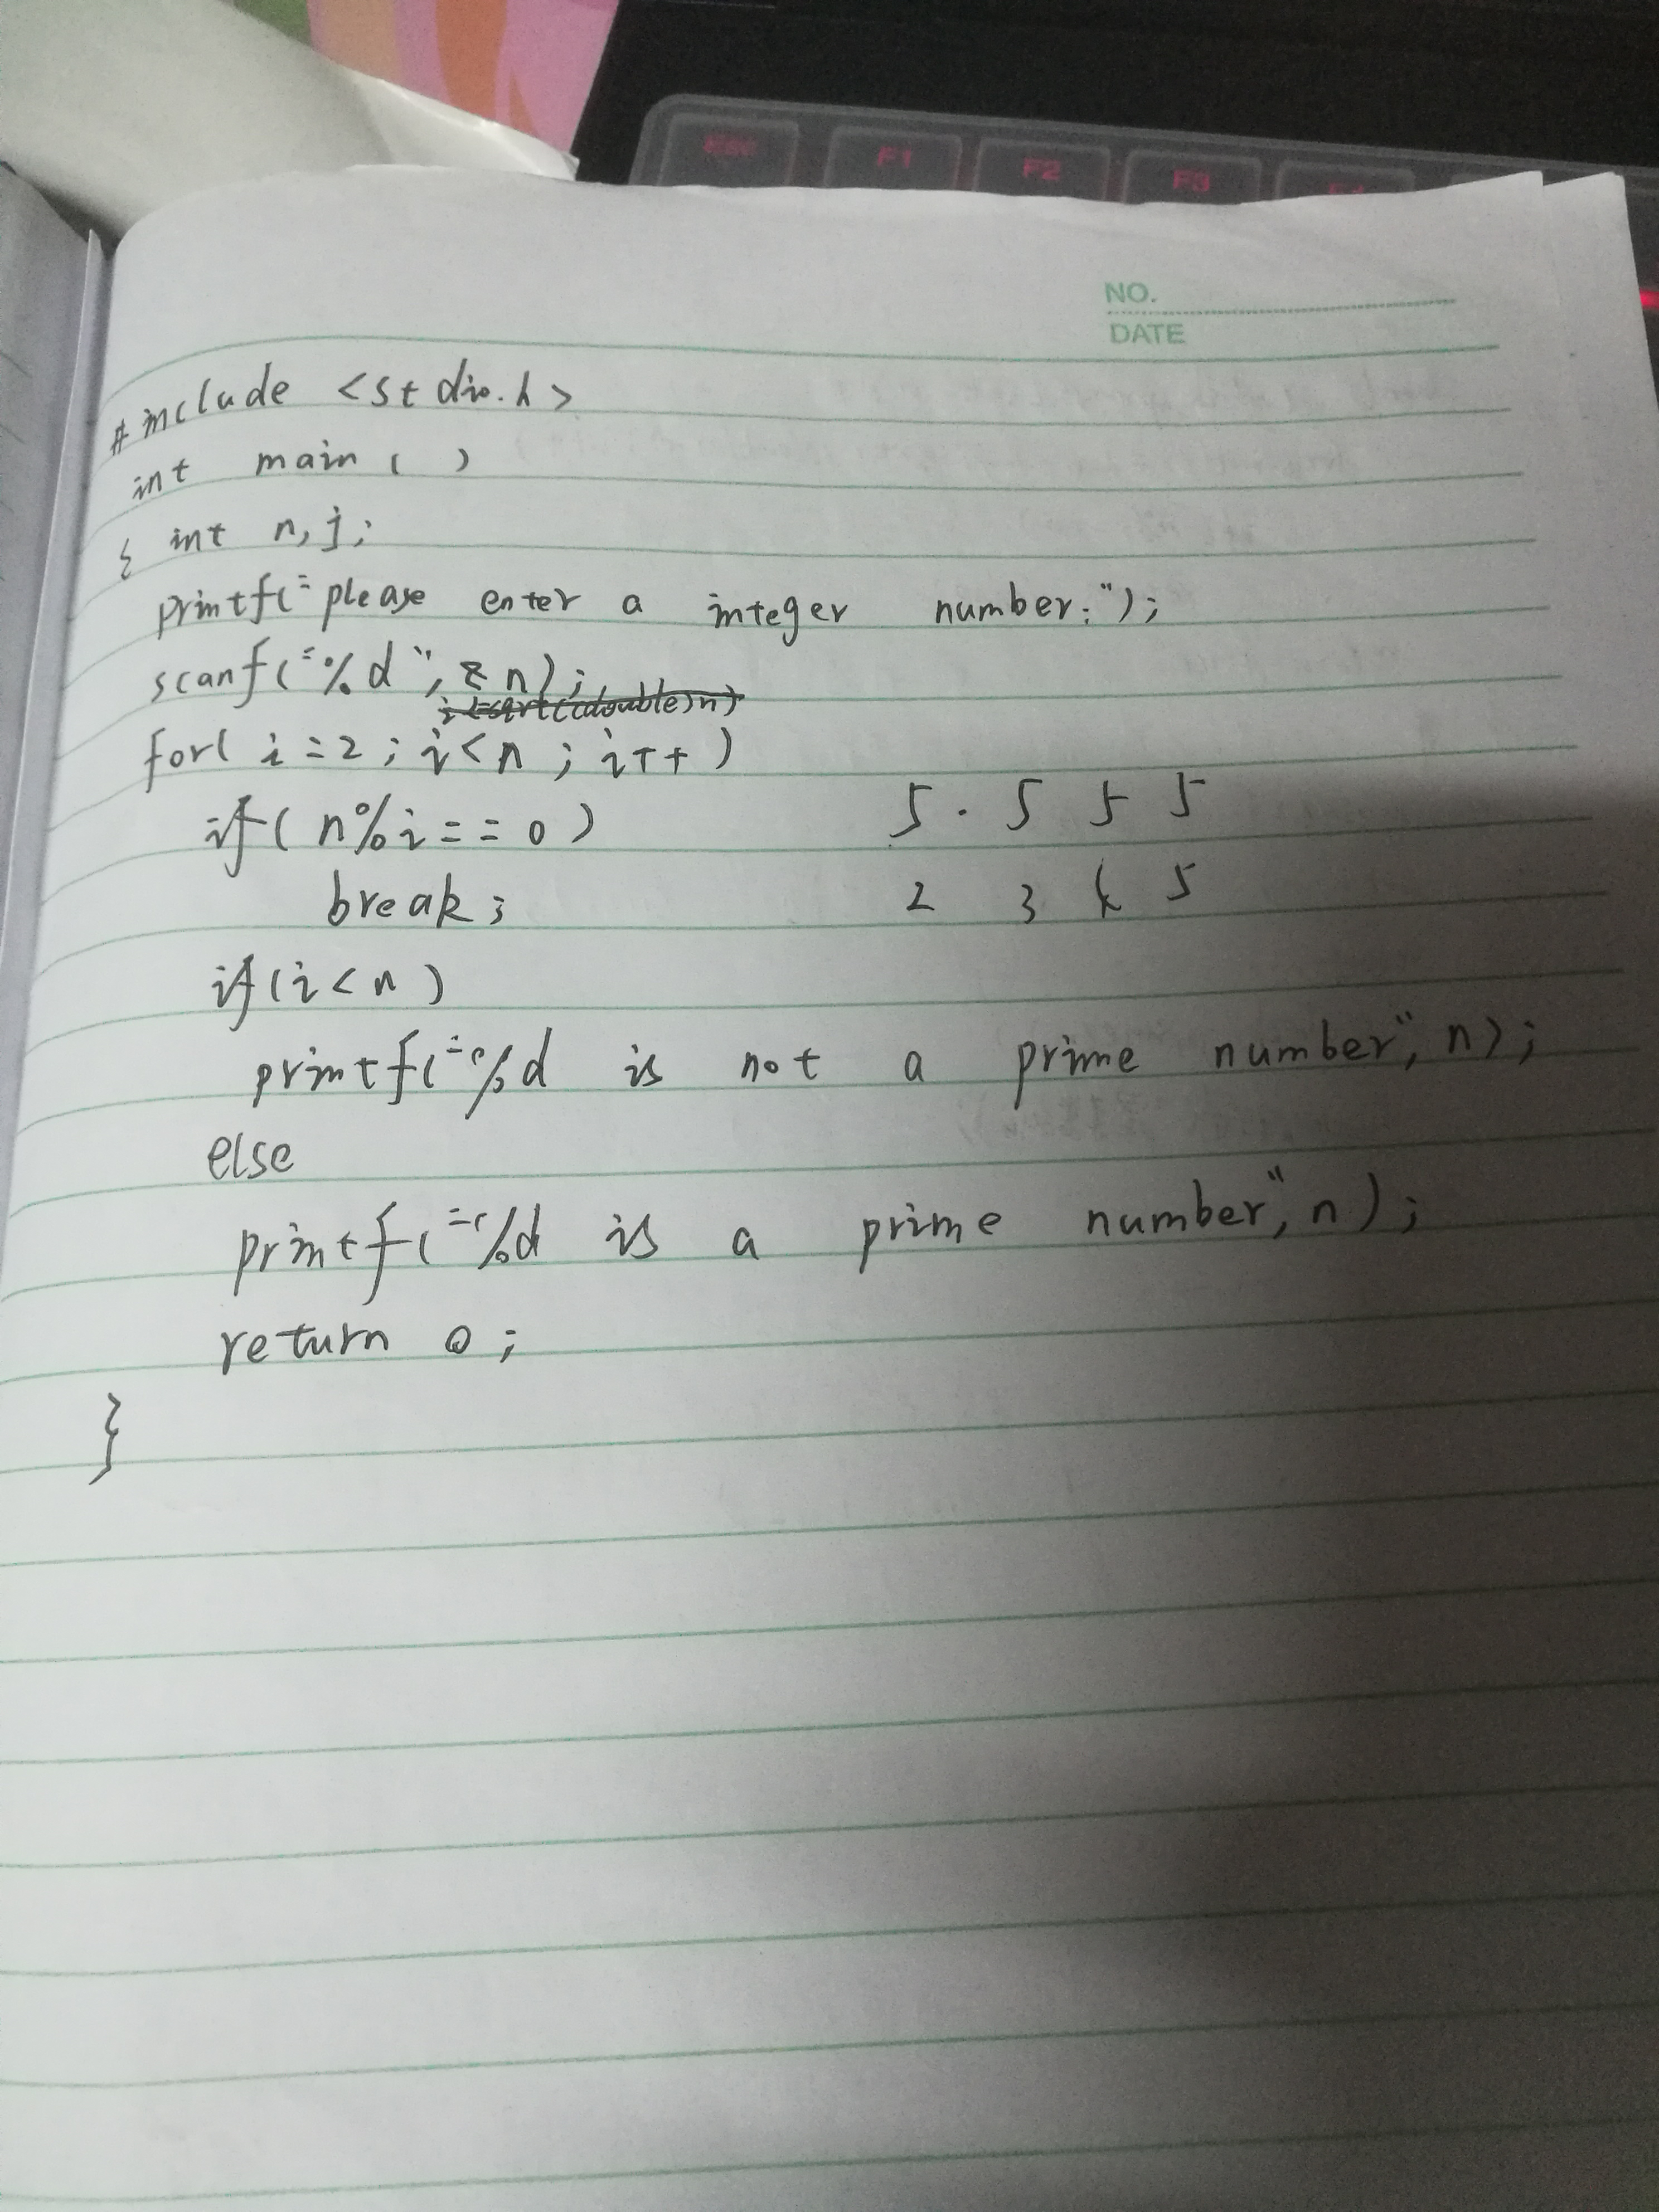 Esc F1 F2 F3 F4
NO.
DATE
#include <stdio.h>
int main ( )
{ int n, j;
printf("please enter a integer number:");
scanf("%d", &n);
i<=sqrt((double)n)
for( i=2; i<n; i++ )
if( n%i==0 )
5 . 5 5 5
break;
2 3 4 5
if(i<n)
printf("%d is not a prime number", n);
else
printf("%d is a prime number", n);
return 0;
}